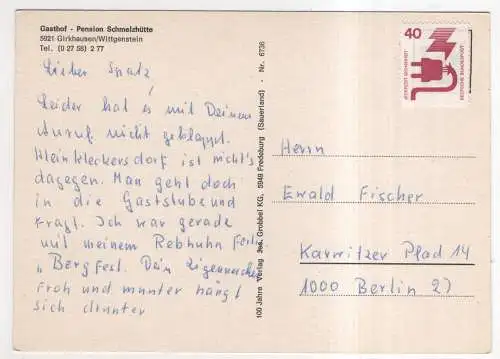 Gasthof - Pension Schmelzhütte
5921 Girkhausen/Wittgenstein
Tel. (0 27 58) 2 77
Lieber Spatz!
Leider hat es mit Deinem
Anruf nicht geklappt.
Kleinkleckersdorf ist nicht's
dagegen. Man geht doch
in die Gaststube und
fragt. Ich war gerade
mit meinem Rebhuhn
"Bergfest. Dein
Froh und munter hängt
sich drunter
100 Jahre Verlag Jos. Grobbel KG, 5949 Fredeburg (Sauerland) · Nr. 6736
40
JEDERZEIT SICHERHEIT
DEUTSCHE BUNDESPOST
Herrn
Ewald Fischer
Karwitzer Pfad 14
1000 Berlin 27